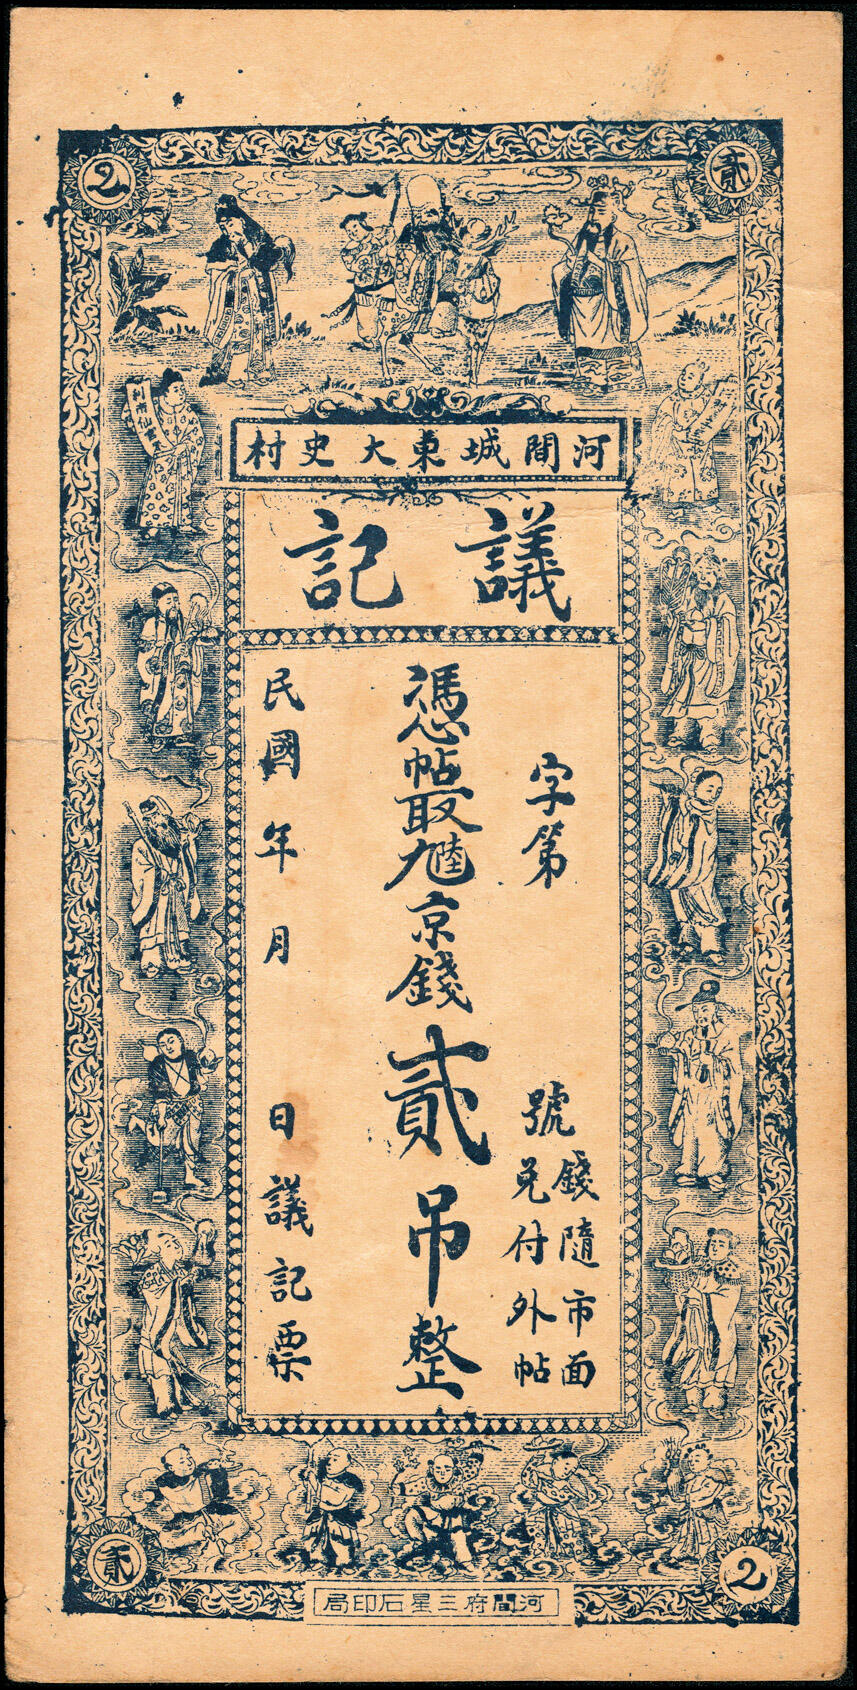 2
貳
河間城東大史村
議記
字第
號
錢隨市面
兌付外帖
憑帖取
京錢貳吊整
民國 年 月 日議記票
貳
2
河間府三星石印局